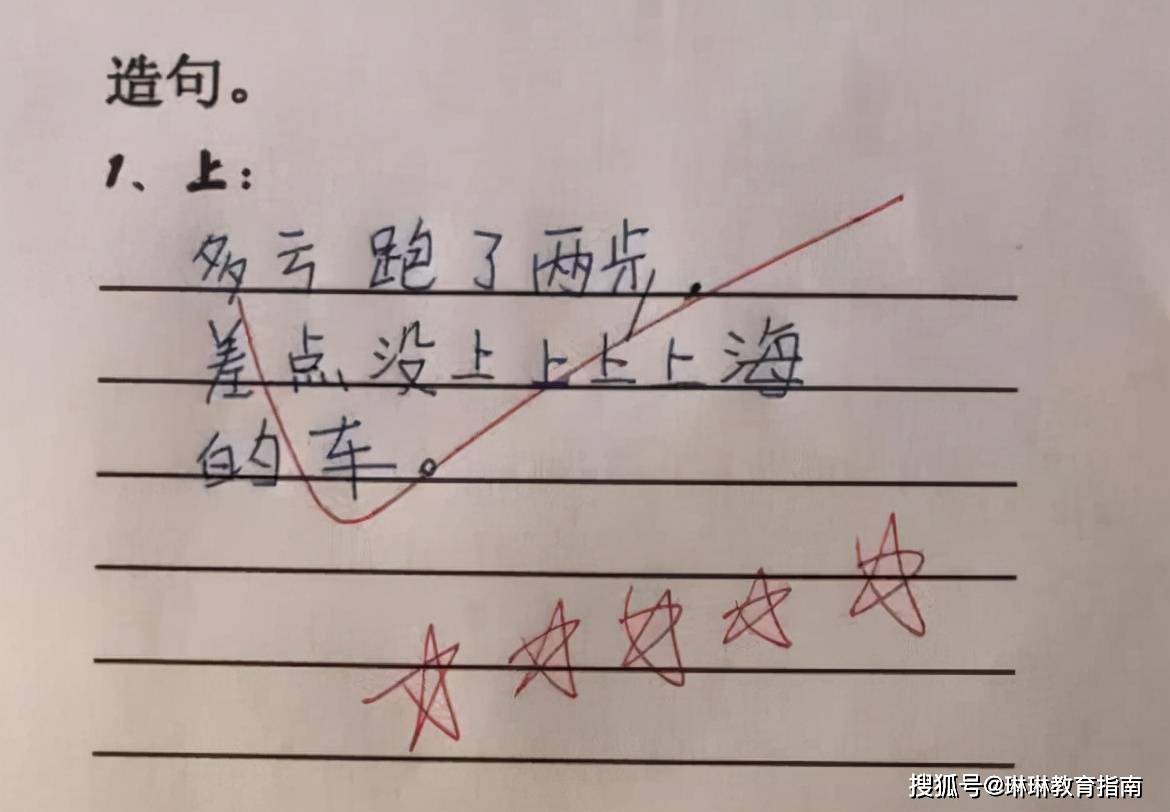 造句。
1、上：
多亏跑了两步.
差点没上上上上海
的车。
搜狐号@琳琳教育指南